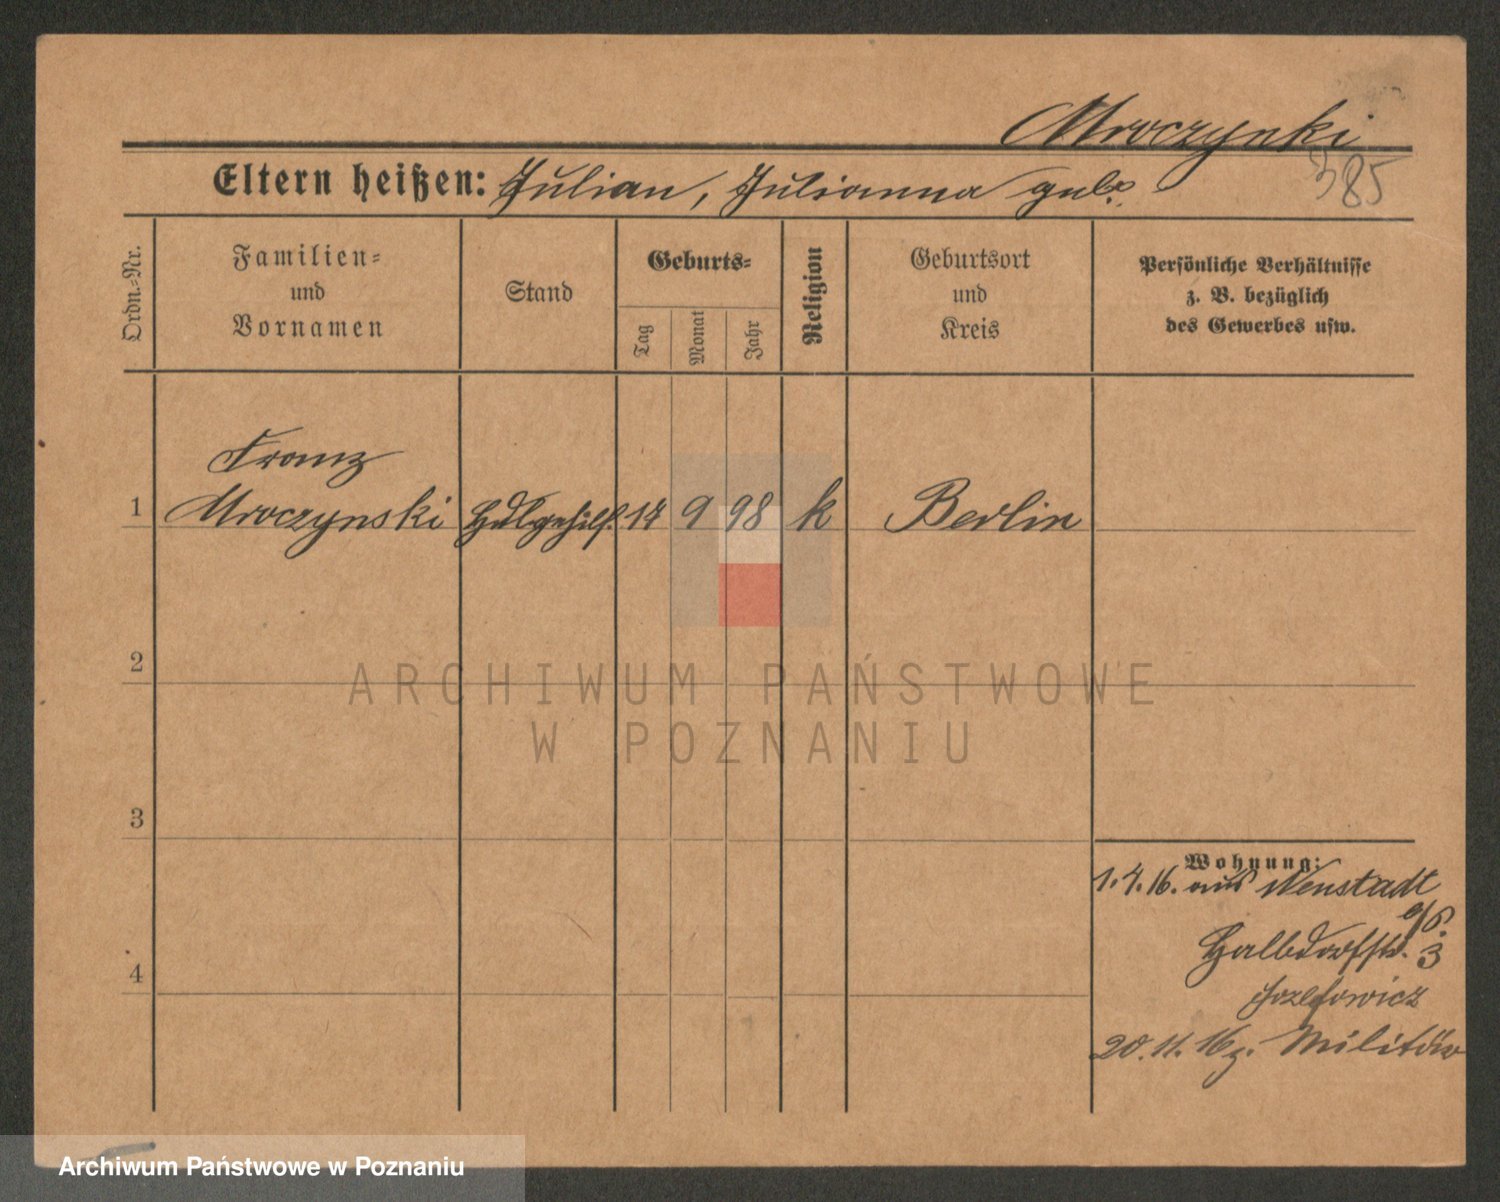 Mroczynski
385
Eltern heißen: Julian, Julianna geb.
Ordn.-Nr.
Familien-
und
Vornamen
Stand
Geburts-
Tag
Monat
Jahr
Religion
Geburtsort
und
Kreis
Persönliche Verhältnisse
z. B. bezüglich
des Gewerbes usw.
Franz
1 Mroczynski 9 98 k Berlin
2
3
4
Wohnung:
aus Neustadt
Halbdorfstr. 3
Jozefowicz
20.11.16 z. Militär
ARCHIWUM PAŃSTWOWE
W POZNANIU
Archiwum Państwowe w Poznaniu